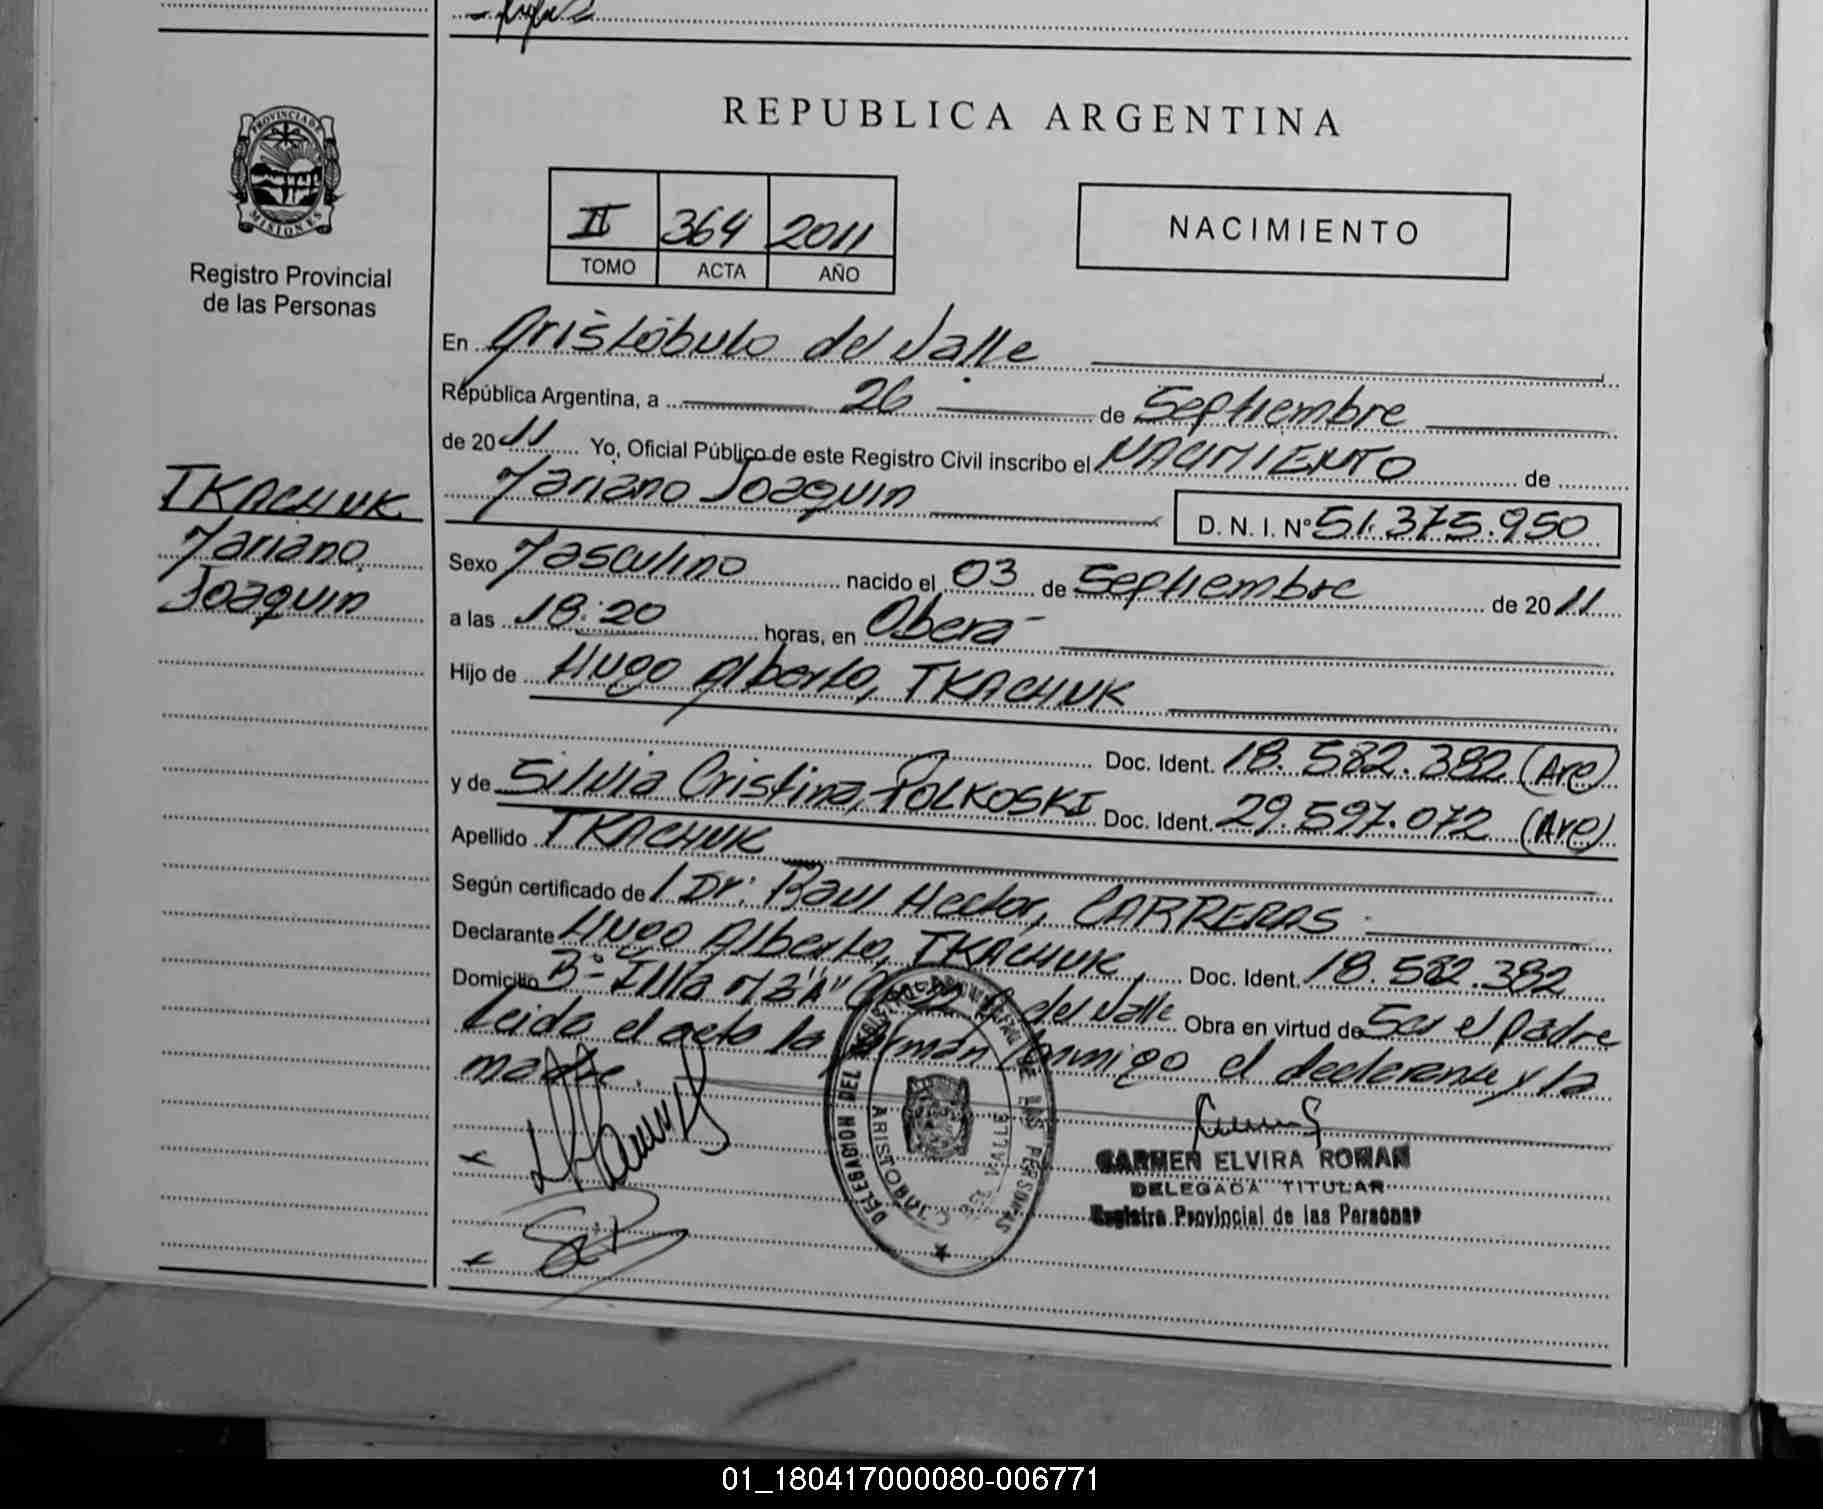 PROVINCIA DE
MISIONES
Registro Provincial
de las Personas
TKACHUK
Mariano
Joaquin
REPUBLICA ARGENTINA
II 364 2011
TOMO ACTA AÑO
NACIMIENTO
En Aristóbulo del Valle
República Argentina, a 26 de Septiembre
de 2011 Yo, Oficial Público de este Registro Civil inscribo el NACIMIENTO de
Mariano Joaquin D. N. I. Nº 51.375.950
Sexo Masculino nacido el 03 de Septiembre de 2011
a las 18:20 horas, en Oberá
Hijo de Hugo Alberto, TKACHUK
Doc. Ident. 18.582.382 (Arg)
y de Silvia Cristina, POLKOSKI Doc. Ident. 29.597.072 (Arg)
Apellido TKACHUK
Según certificado de Dr: Raul Hector, CARRERAS
Declarante Hugo Alberto, TKACHUK, Doc. Ident. 18.582.382
Domicilio Bº "A" del Valle Obra en virtud de Ser el padre
Leida el acta la firman conmigo el declarante y la
madre.
DELEGACION DEL REGISTRO PROVINCIAL DE LAS PERSONAS
ARISTOBULO DEL VALLE
CARMEN ELVIRA ROMAN
DELEGADA TITULAR
Registro Provincial de las Personas
01_180417000080-006771